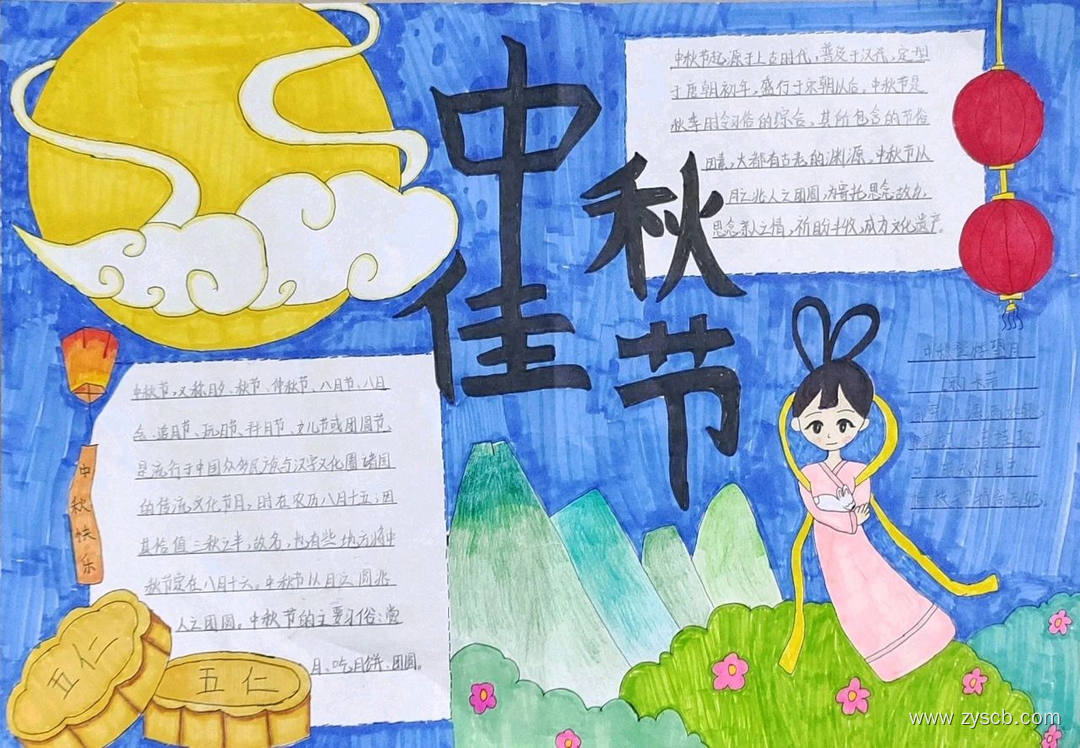 中秋佳节
中秋节起源于上古时代，普及于汉代，定型
于唐朝初年，盛行于宋朝以后。中秋节是
秋季时令习俗的综合，其所包含的节俗
因素，大都有古老的渊源。中秋节以
月之圆兆人之团圆，为寄托思念故乡，
思念亲人之情，祈盼丰收，成为文化遗产。
中秋节，又称月夕、秋节、仲秋节、八月节、八月
会、追月节、玩月节、拜月节、女儿节或团圆节
是流行于中国众多民族与汉字文化圈诸国
的传统文化节日，时在农历八月十五；因
其恰值三秋之半，故名，也有些地方将中
秋节定在八月十六。中秋节以月之圆兆
人之团圆。中秋节的主要习俗：赏
月、吃月饼、团圆。
中秋快乐
五仁
五仁
望月
www.zyscb.com